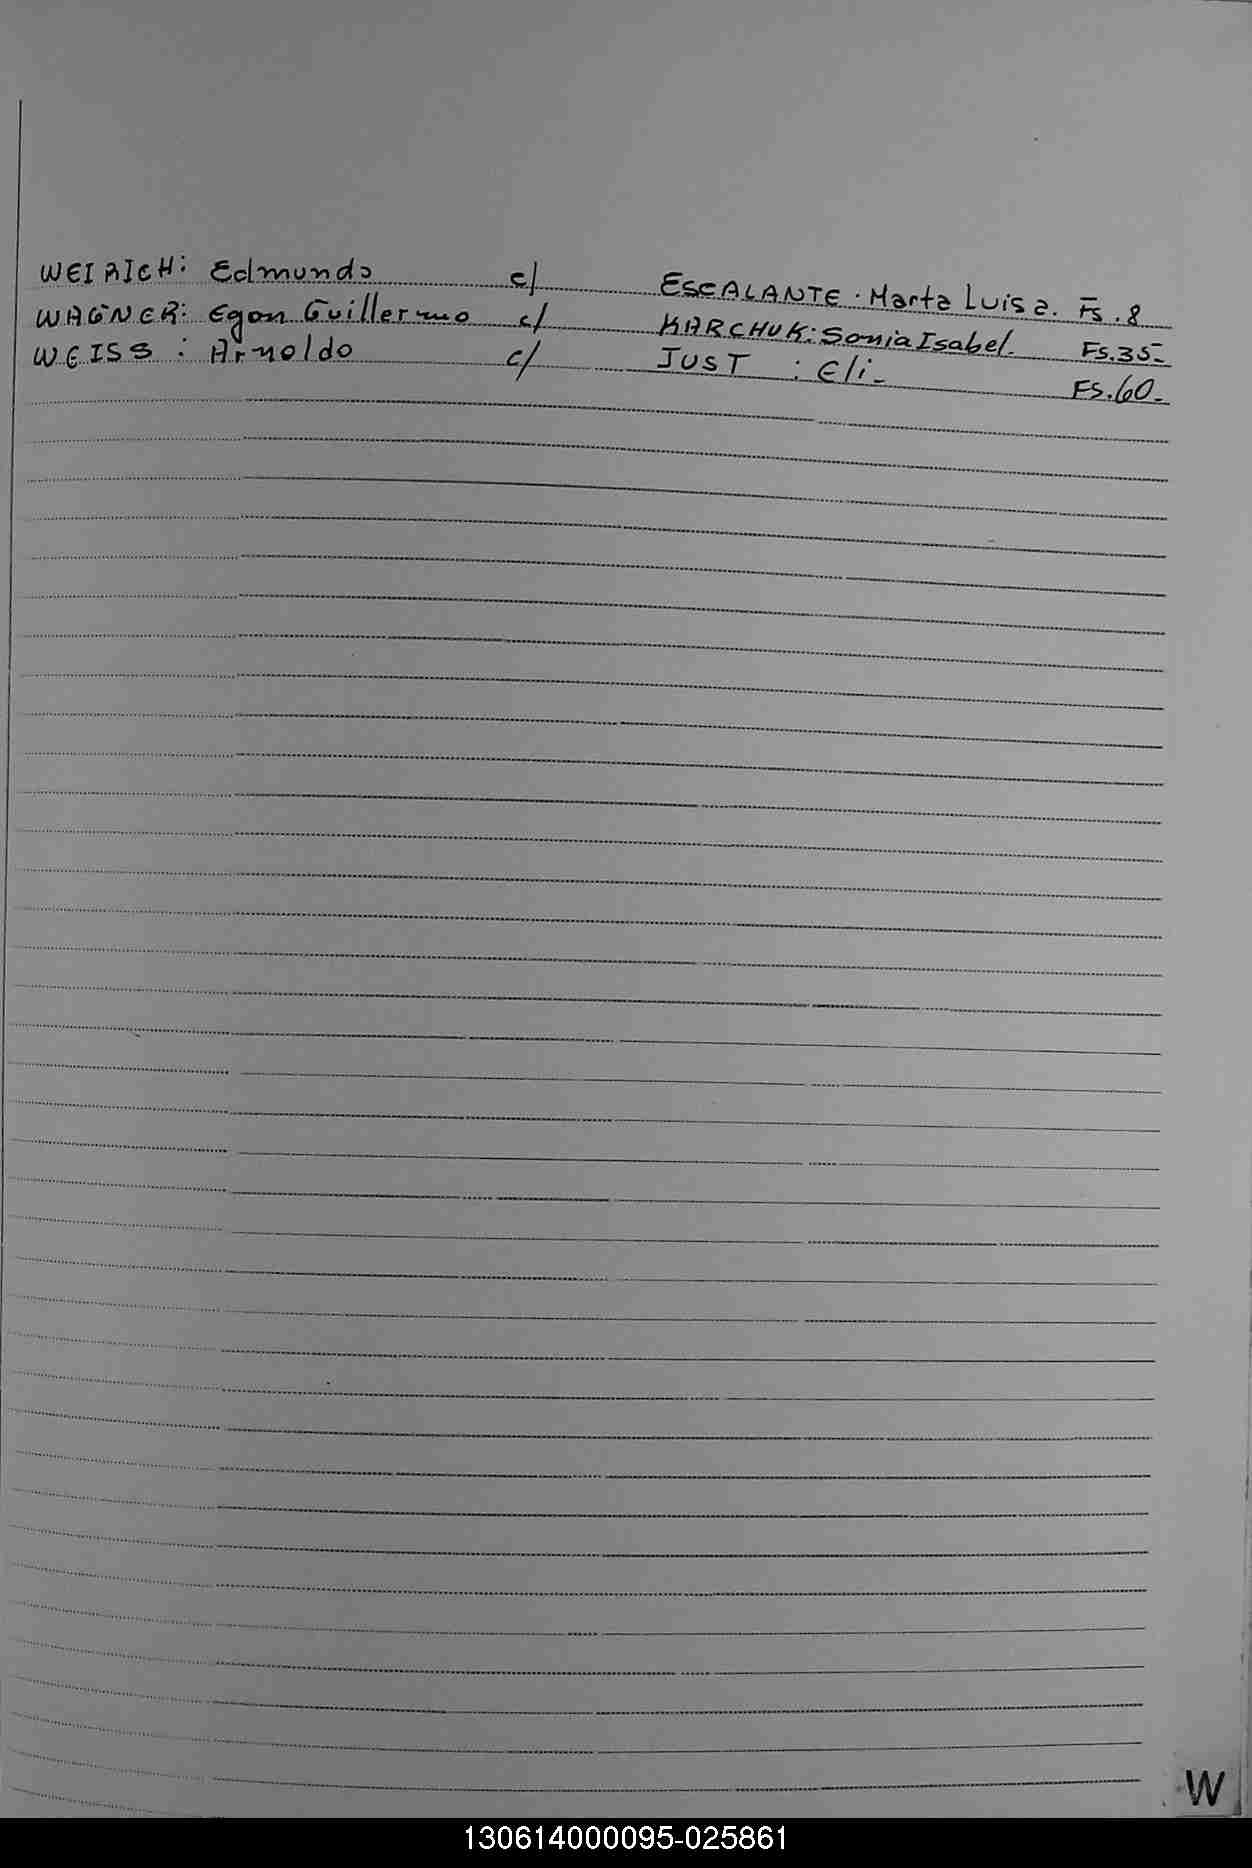 WEIRICH: Edmundo c/ ESCALANTE. Marta Luisa. Fs. 8
WAGNER: Egon Guillermo c/ KARCHUK: Sonia Isabel. Fs. 35-
WEISS : Arnoldo c/ JUST : Eli- Fs. 60-
W
130614000095-025861